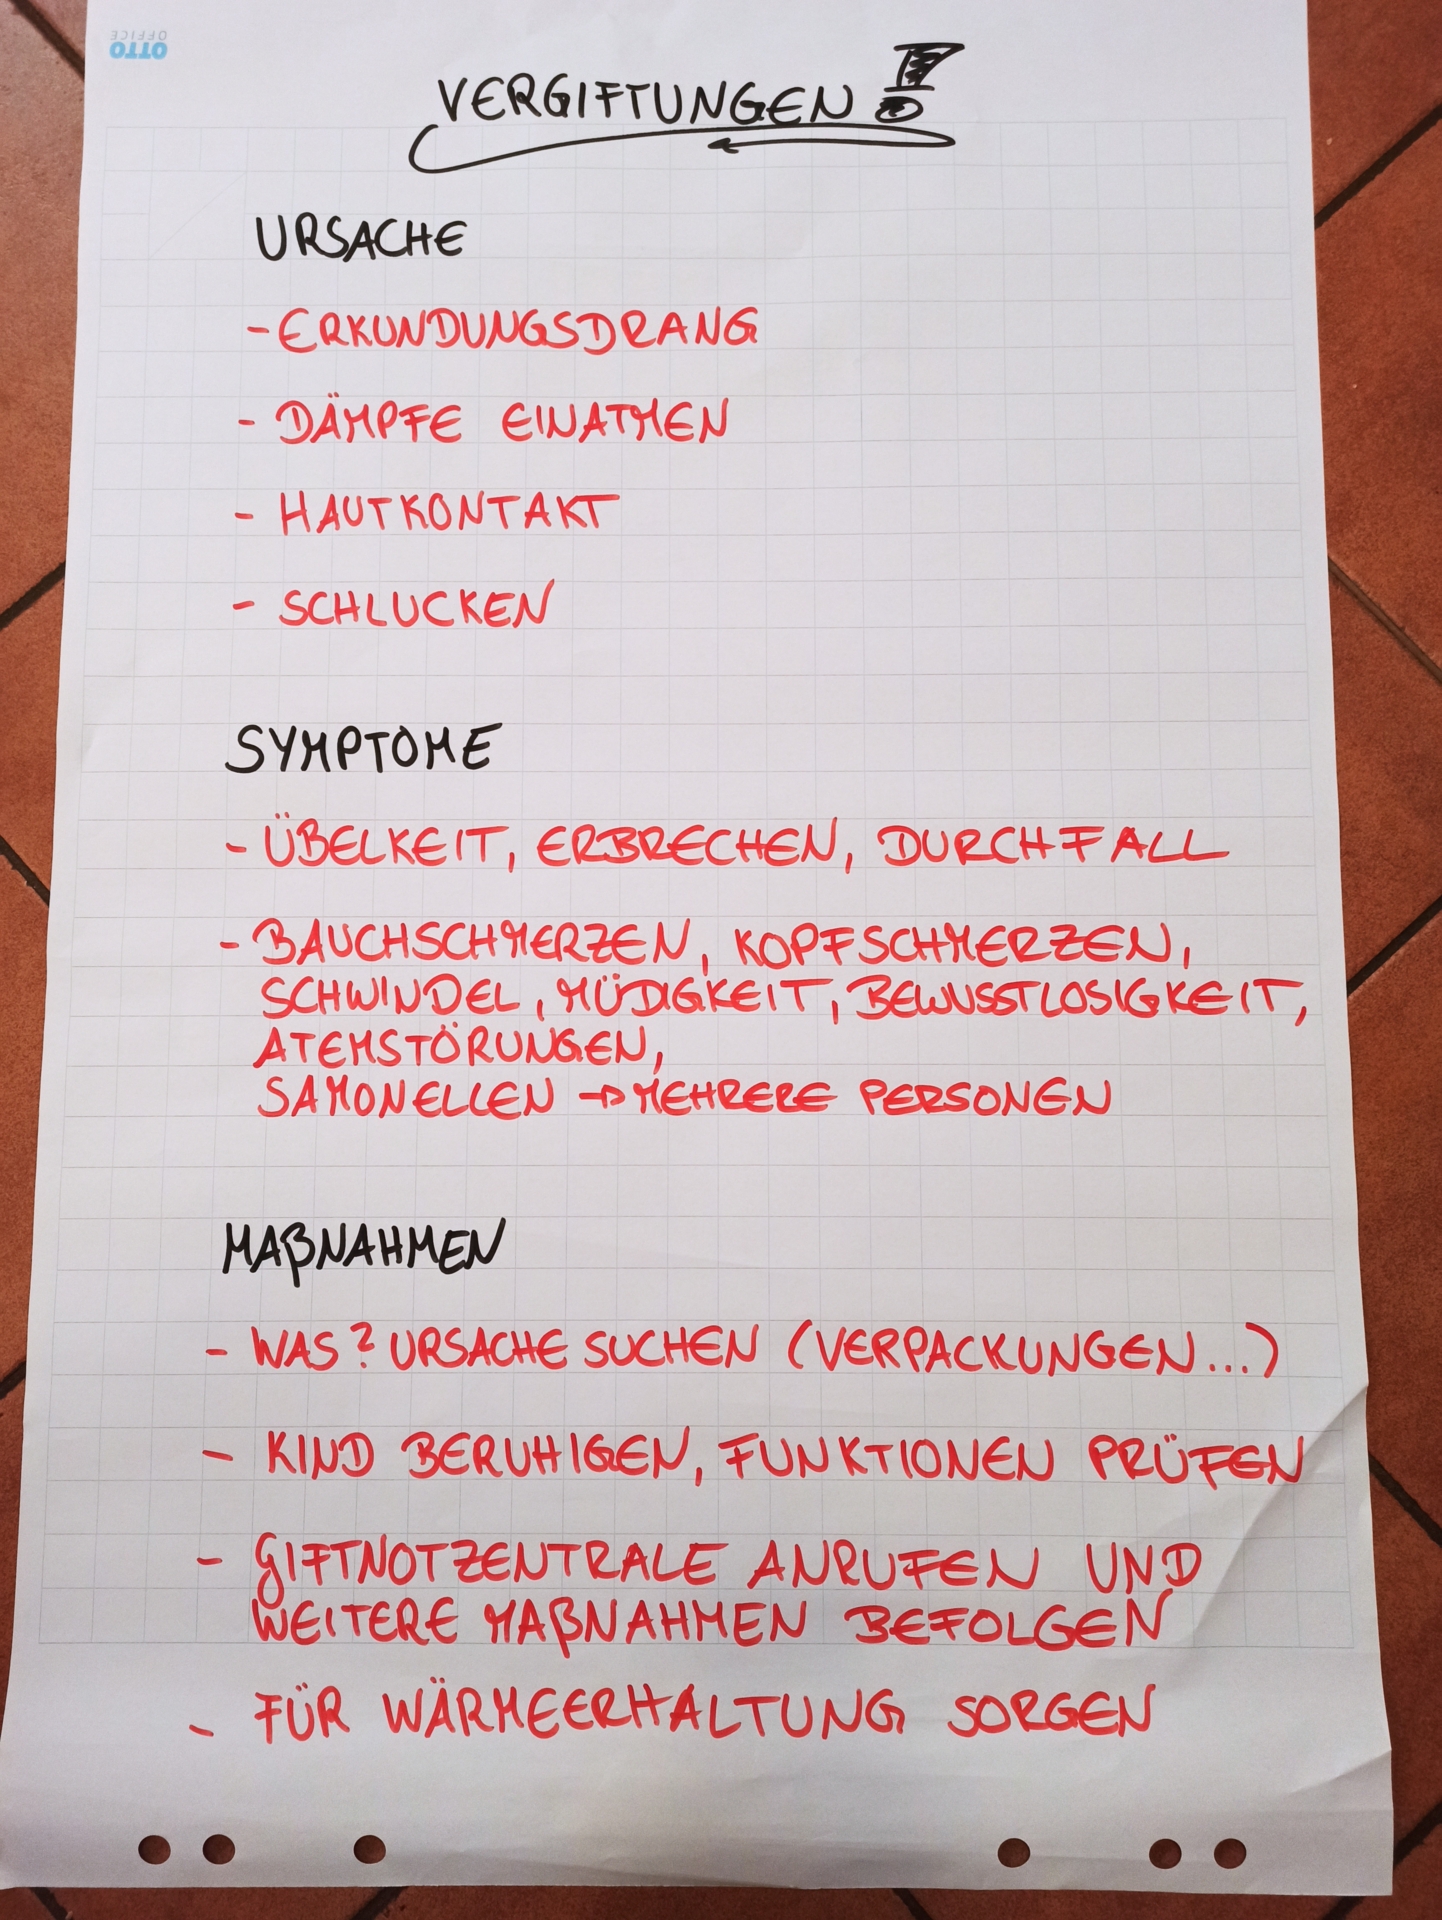 OTTO
OFFICE
VERGIFTUNGEN!
URSACHE
- ERKUNDUNGSDRANG
- DÄMPFE EINATMEN
- HAUTKONTAKT
- SCHLUCKEN
SYMPTOME
- ÜBELKEIT, ERBRECHEN, DURCHFALL
- BAUCHSCHMERZEN, KOPFSCHMERZEN,
SCHWINDEL, MÜDIGKEIT, BEWUSSTLOSIGKEIT,
ATEMSTÖRUNGEN,
SAMONELLEN → MEHRERE PERSONEN
MAßNAHMEN
- WAS? URSACHE SUCHEN (VERPACKUNGEN...)
- KIND BERUHIGEN, FUNKTIONEN PRÜFEN
- GIFTNOTZENTRALE ANRUFEN UND
WEITERE MAßNAHMEN BEFOLGEN
- FÜR WÄRMEERHALTUNG SORGEN